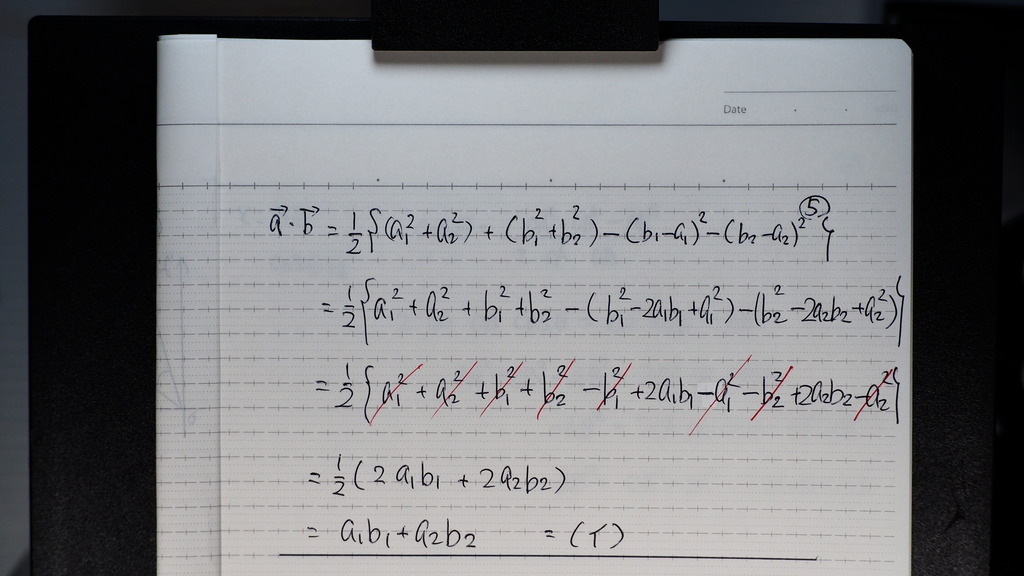 Date
⑤
\vec{a}·\vec{b} = 1/2 {(a₁² + a₂²) + (b₁² + b₂²) − (b₁−a₁)² − (b₂−a₂)²}
= 1/2 {a₁² + a₂² + b₁² + b₂² − (b₁² − 2a₁b₁ + a₁²) − (b₂² − 2a₂b₂ + a₂²)}
= 1/2 {a₁² + a₂² + b₁² + b₂² − b₁² + 2a₁b₁ − a₁² − b₂² + 2a₂b₂ − a₂²}
= 1/2 (2a₁b₁ + 2a₂b₂)
= a₁b₁ + a₂b₂ = (イ)